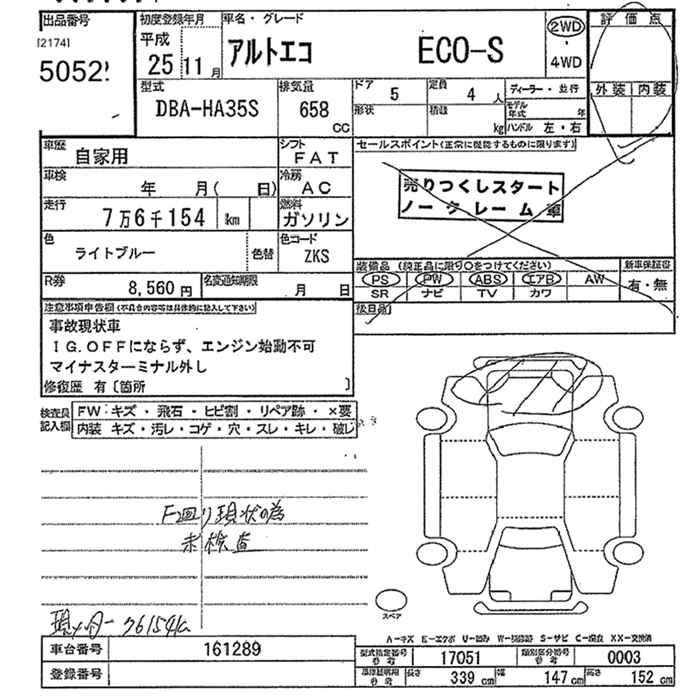 出品番号
[2174]
初度登録年月
平成
25 11月
車名・グレード
アルトエコ ECO-S
2WD
・
4WD
評価点
外装 内装
型式
DBA-HA35S
排気量
658
CC
ドア 5
定員 4 人
形状
積載 kg
ディーラー・並行
モデル年式 年
ハンドル 左・右
車歴
自家用
シフト
FAT
車検
年 月( 日)
冷房
AC
走行
7万6千154 km
燃料
ガソリン
色
ライトブルー
色替
色コード
ZKS
R券
8,560円
名変通知期限
月 日
セールスポイント(正常に機能するものに限ります)
売りつくしスタート
ノークレーム車
装備品 (純正品に限り○をつけてください)
PS PW ABS エアB AW
SR ナビ TV カワ
新車保証書
有・無
後日品
注意事項申告欄(不具合内容等は具体的に記入して下さい)
事故現状車
IG.OFFにならず、エンジン始動不可
マイナスターミナル外し
修復歴 有〔箇所 〕
検査員
記入欄
FW キズ・飛石・ヒビ割・リペア跡・×要
内装 キズ・汚レ・コゲ・穴・スレ・キレ・破レ
F廻り現状の為
未検査
スペア
車台番号 161289
登録番号
型式指定番号
参考
17051
類別区分番号
参考
0003
長さ 339 cm
幅 147 cm
高さ 152 cm